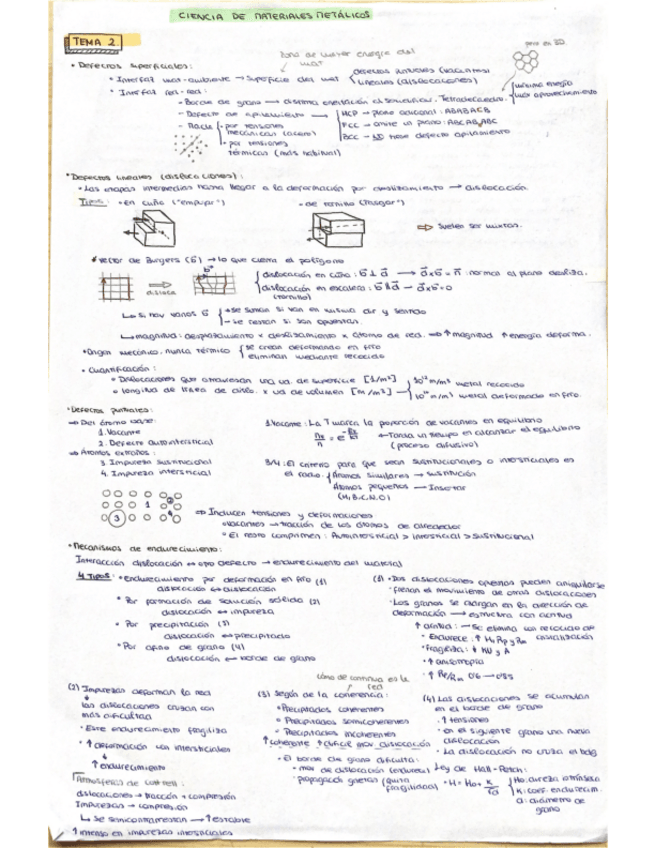 CIENCIA DE MATERIALES METÁLICOS
TEMA 2.
pero en 3D
zona de mayor energía del mat
• Defectos superficiales:
• Interfaz mat-ambiente → superficie del mat
defectos puntuales (vacantes)
lineales (dislocaciones)
mínima energía
máx aprovechamiento
• Interfaz red-red:
- Borde de grano → distinta orientación al solidificar. Tetradecaedro.
- Defecto de apilamiento → HCP → plano adicional: ABABACB
FCC → omite un plano: ABCAB,ABC
BCC → no tiene defecto apilamiento
- Macla
• por tensiones mecánicas (acero)
• por tensiones térmicas (más habitual)
• Defectos lineales (dislocaciones):
• Las etapas intermedias hasta llegar a la deformación por deslizamiento → dislocación
Tipos: • en cuña ("empujar")
- de tornillo ("rasgar")
⇒ Suelen ser mixtas.
* vector de Burgers (b) → lo que cierra el polígono
dislocación en cuña: b ⊥ d → d x b = n : normal al plano desliza.
disloca
dislocación en escalera: b ∥ d → d x b = 0
(tornillo)
↳ si hay varios b
→ se suman si van en misma dir y sentido
→ se restan si son opuestas.
↳ magnitud: desplazamiento x deslizamiento x átomo de red. ⇒ ↑ magnitud ↑ energía deforma.
• Origen mecánico, nunca térmico
se crean deformando en frío
eliminan mediante recocido
• Cuantificación:
• Dislocaciones que atraviesan una ud. de superficie [1/m²]
10¹² m/m³ metal recocido
• longitud de línea de disloc. x ud de volumen [m/m³]
metal deformado en frío.
• Defectos puntuales:
⇒ Del átomo base:
1. Vacante
2. Defecto autointersticial
⇒ Átomos extraños:
3. Impureza sustitucional
4. Impureza intersticial
1. Vacante: La T marca la proporción de vacantes en equilibrio
← Tarda un tiempo en alcanzar el equilibrio
(proceso difusivo)
3/4: El criterio para que sean sustitucionales o intersticiales es
el radio:
Átomos similares → sustitución
Átomos pequeños → Insertar
(H,B,C,N,O)
1
2
3
4
⇒ Inducen tensiones y deformaciones
• Vacantes → tracción de los átomos de alrededor
• El resto comprimen: Autointersticial > intersticial > sustitucional
• Mecanismos de endurecimiento:
Interacción dislocación ↔ otro defecto → endurecimiento del material
4 TIPOS: • Endurecimiento por deformación en frío (1)
dislocación ↔ dislocación
• Por formación de solución sólida (2)
dislocación ↔ impureza
• Por precipitación (3)
dislocación ↔ precipitado
• Por afino de grano (4)
dislocación ↔ borde de grano
(1) • Dos dislocaciones opuestas pueden aniquilarse
• frenan el movimiento de otras dislocaciones
• Los granos se alargan en la dirección de
deformación → estructura con acritud
↑ acritud: → Se elimina con recocido de cristalización
• Endurece: ↑ H, Rp y Rm
• Fragiliza: ↓ KU y A
• ↑ anisotropía
• ↑ Re/Rm 0'6 → 0'85
cómo de continua es la red
(2) Impurezas deforman la red
↓
las dislocaciones cruzan con
más dificultad
• Este endurecimiento fragiliza
• ↑ deformación con intersticiales
↓
↑ endurecimiento
Atmósferas de Cottrell:
dislocaciones → tracción + compresión
Impurezas → compresión
↳ se semicontrarrestan → ↑ estable
↑ intenso en impurezas intersticiales
(3) Según de la coherencia:
• Precipitados coherentes
• Precipitados semicoherentes
• Precipitados incoherentes
↑ coherente ↑ difícil mov. dislocación
• El borde de grano dificulta:
• mov de dislocación (endurece)
• propagación grietas (quita fragilidad)
(4) Las dislocaciones se acumulan
en el borde de grano
• ↑ tensiones
• en el siguiente grano una nueva
dislocación
• La dislocación no cruza el bdg
Ley de Hall-Petch:
• H = H₀ + K/√d
H₀: dureza intrínseca
K: coef. endurecim.
d: diámetro de grano